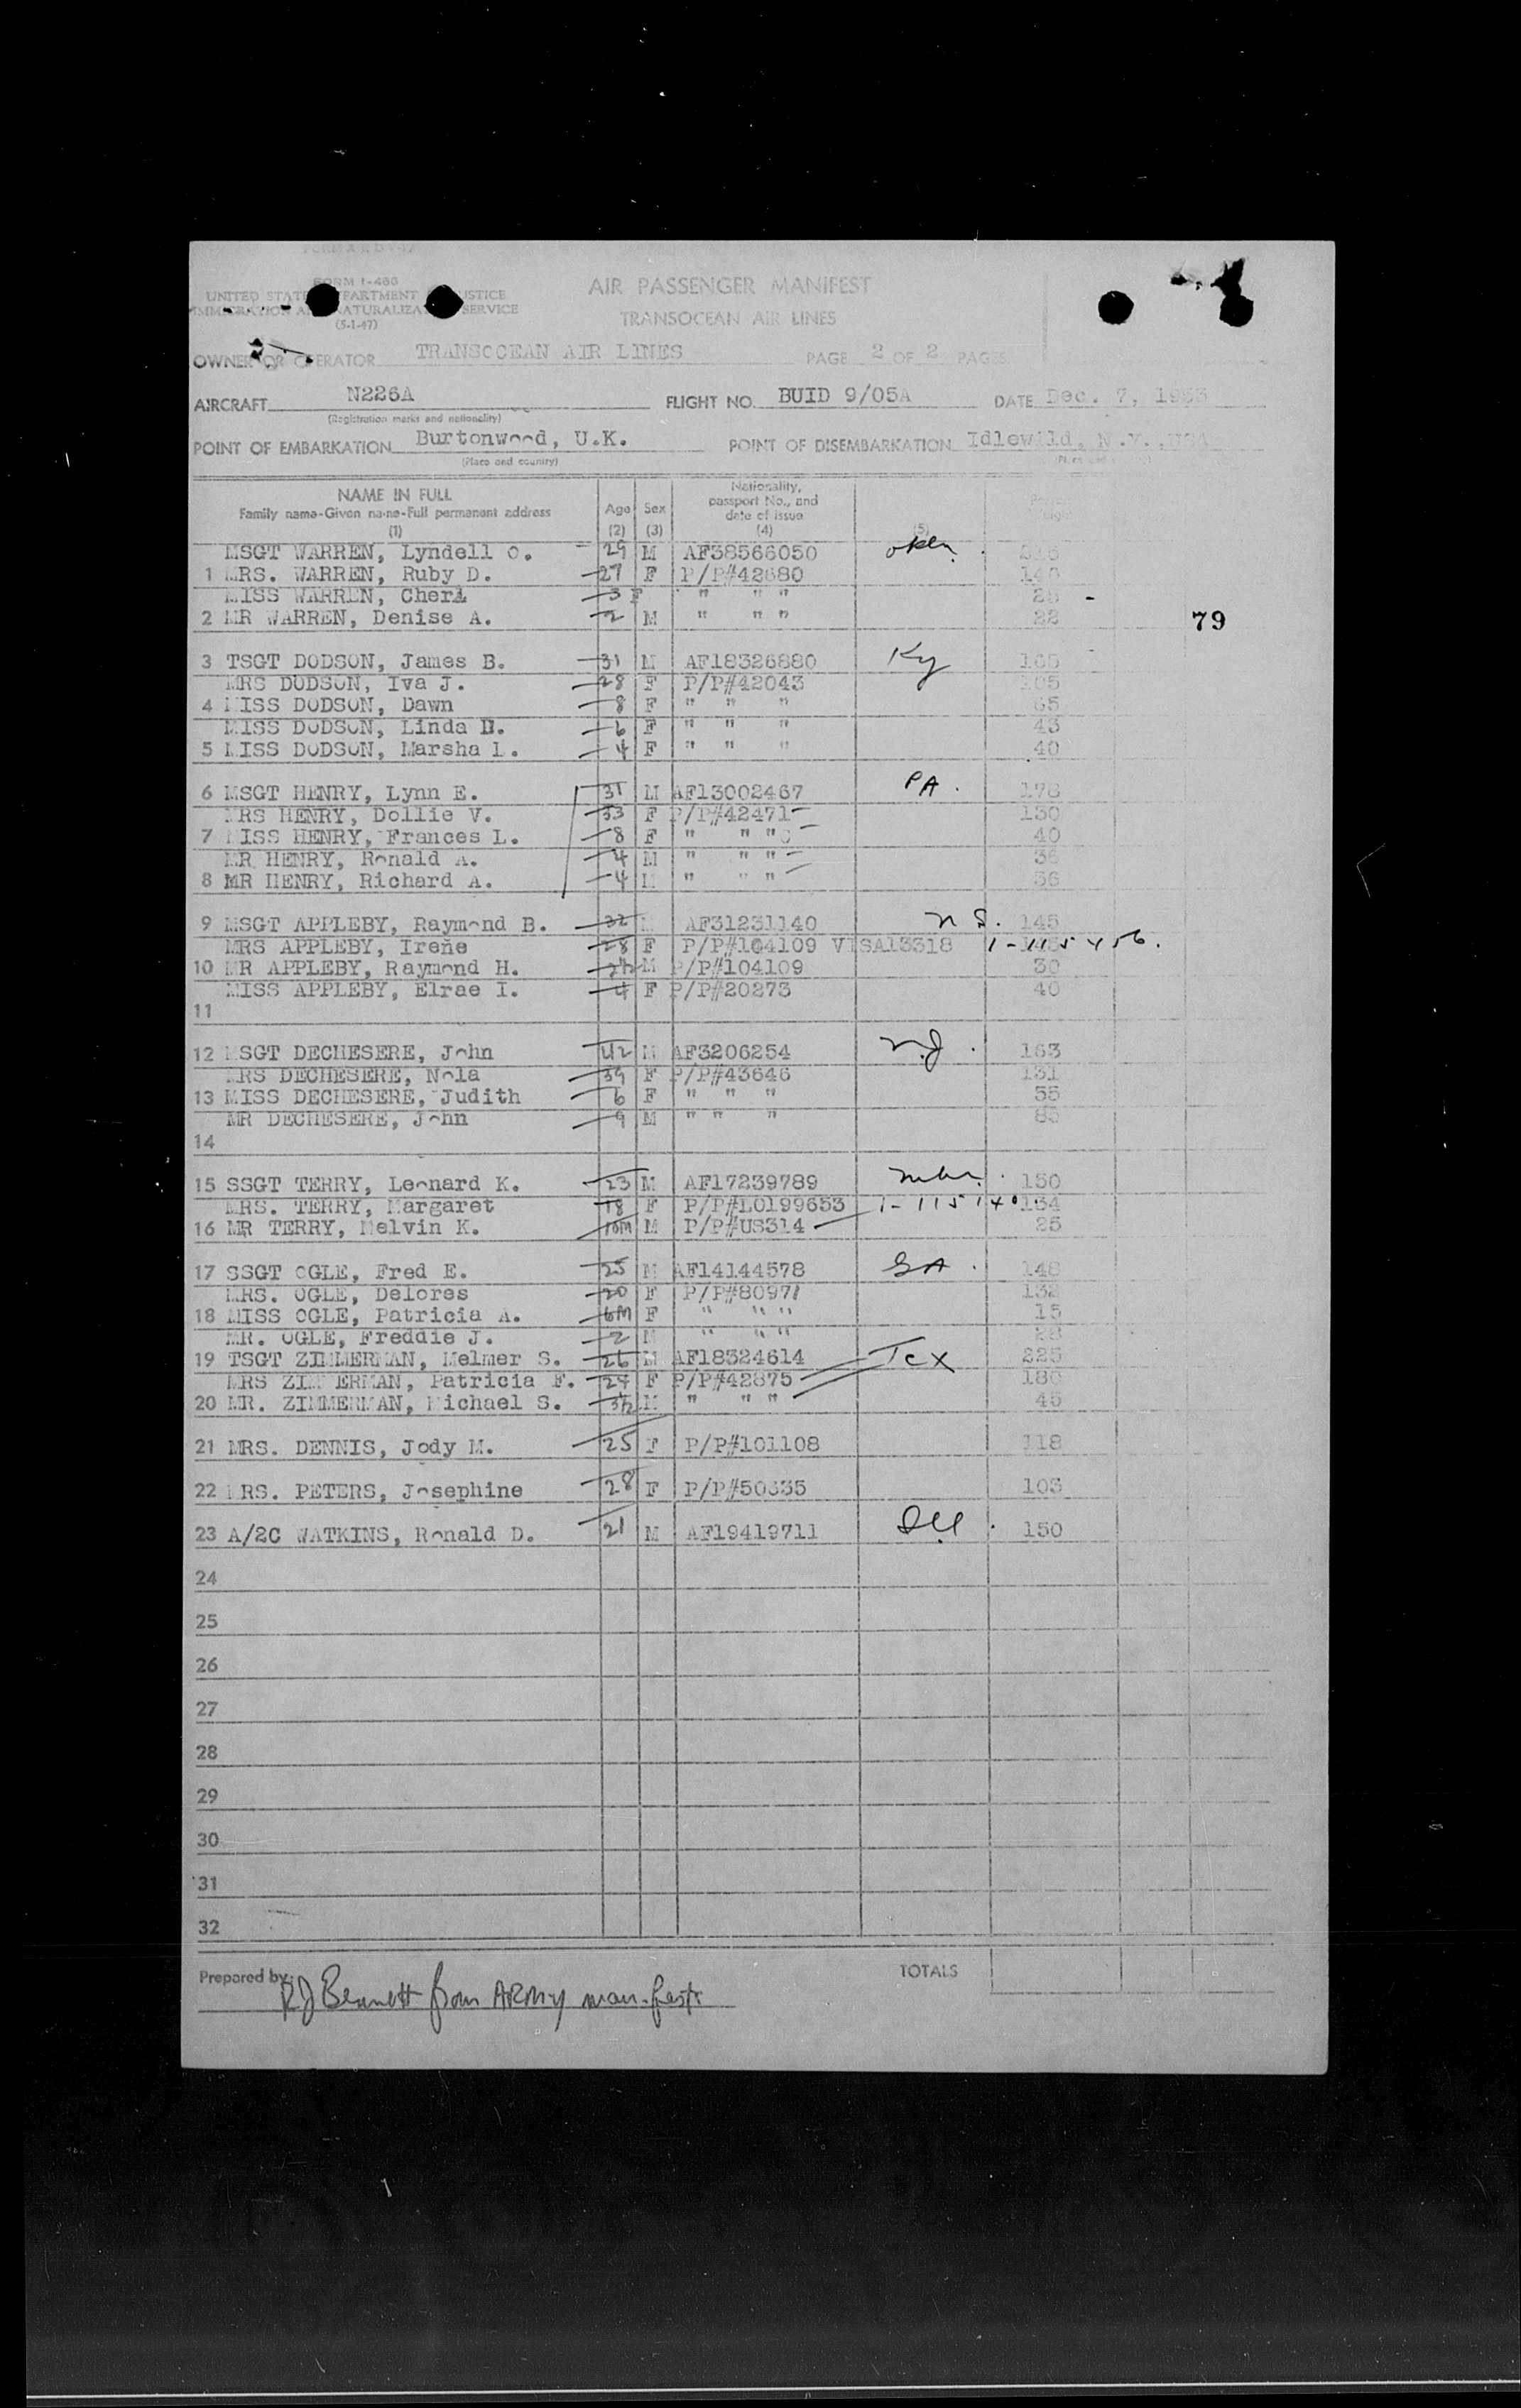 FORM I-466
UNITED STATES DEPARTMENT JUSTICE
IMMIGRATION AND NATURALIZATION SERVICE
(5-1-47)
AIR PASSENGER MANIFEST
TRANSOCEAN AIR LINES
OWNER OR OPERATOR TRANSOCEAN AIR LINES PAGE 2 OF 2 PAGES
AIRCRAFT N226A FLIGHT NO. BUID 9/05A DATE Dec. 7, 1953
(Registration marks and nationality)
POINT OF EMBARKATION Burtonwood, U.K. POINT OF DISEMBARKATION Idlewild, N.Y.,USA
(Place and country)
NAME IN FULL Family name-Given name-Full permanent address (1) Age (2) Sex (3) Nationality, passport No., and date of issue (4) (5)
MSGT WARREN, Lyndell O. 29 M AF38566050
1 MRS. WARREN, Ruby D. 27 F P/P#42680 140
MISS WARREN, Cheri 3 F " " "
2 MR WARREN, Denise A. 2 M " " " 22
79
3 TSGT DODSON, James B. 31 M AF18326880 Ky 165
MRS DODSON, Iva J. 28 F P/P#42043 105
4 MISS DODSON, Dawn 8 F " " " 65
MISS DODSON, Linda D. 6 F " " " 43
5 MISS DODSON, Marsha L. 4 F " " " 40
6 MSGT HENRY, Lynn E. 31 M AF13002467 PA. 178
MRS HENRY, Dollie V. 33 F P/P#42471 130
7 MISS HENRY, Frances L. 8 F " " " 40
MR HENRY, Ronald A. 4 M " " " 36
8 MR HENRY, Richard A. 4 M " " " 36
9 MSGT APPLEBY, Raymond B. 32 M AF31231140 145
MRS APPLEBY, Irene 28 F P/P#104109 VISA13318 1-115456.
10 MR APPLEBY, Raymond H. 2½ M P/P#104109 30
MISS APPLEBY, Elrae I. 4 F P/P#20273 40
11
12 MSGT DECHESERE, John 42 M AF3206254 N.J. 163
MRS DECHESERE, Nola 39 F P/P#43646 131
13 MISS DECHESERE, Judith 6 F " " " 55
MR DECHESERE, John 9 M " " " 85
14
15 SSGT TERRY, Leonard K. 23 M AF17239789 150
MRS. TERRY, Margaret 18 F P/P#L0199653 1-115140 134
16 MR TERRY, Melvin K. 10M M P/P#US314 25
17 SSGT OGLE, Fred E. 25 M AF14144578 GA. 148
MRS. OGLE, Delores 20 F P/P#80971 132
18 MISS OGLE, Patricia A. 6M F " " " 15
MR. OGLE, Freddie J. 2 M " " " 28
19 TSGT ZIMMERMAN, Melmer S. 26 M AF18324614 Tex 225
MRS ZIMMERMAN, Patricia F. 24 F P/P#42875 180
20 MR. ZIMMERMAN, Michael S. 3½ M " " " 45
21 MRS. DENNIS, Jody M. 25 F P/P#101108 118
22 MRS. PETERS, Josephine 28 F P/P#50335 105
23 A/2C WATKINS, Ronald D. 21 M AF19419711 Ill. 150
24
25
26
27
28
29
30
31
32
Prepared by: RJ Bennett from ARMY manifests TOTALS